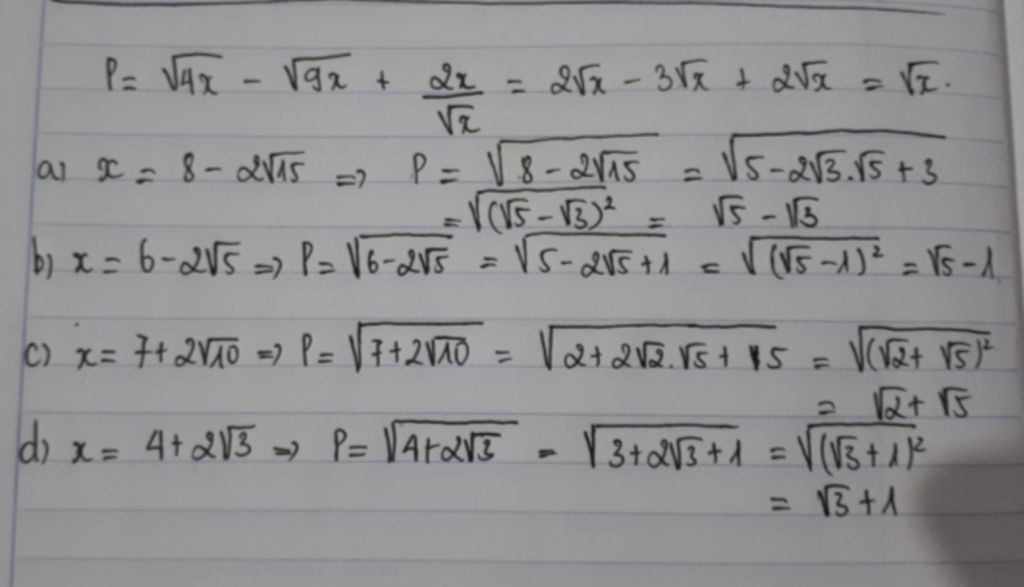 P = √4x - √9x + 2x/√x = 2√x - 3√x + 2√x = √x.
a) x = 8 - 2√15 => P = √(8 - 2√15) = √(5 - 2√3.√5 + 3)
= √((√5 - √3)²) = √5 - √3
b) x = 6 - 2√5 => P = √(6 - 2√5) = √(5 - 2√5 + 1) = √((√5 - 1)²) = √5 - 1
c) x = 7 + 2√10 => P = √(7 + 2√10) = √(2 + 2√2.√5 + 5) = √((√2 + √5)²)
= √2 + √5
d) x = 4 + 2√3 => P = √(4 + 2√3) = √(3 + 2√3 + 1) = √((√3 + 1)²)
= √3 + 1